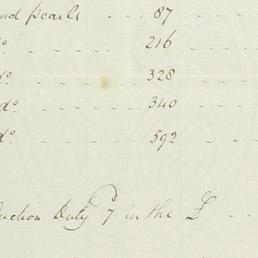 nd pearls - - - 87 - - -
do - - - - - 216 - - -
do - - - - - 328 - - -
do - - - - - 340 - - -
do - - - - - 592 - - -
uction Duty 7d in the £ - -